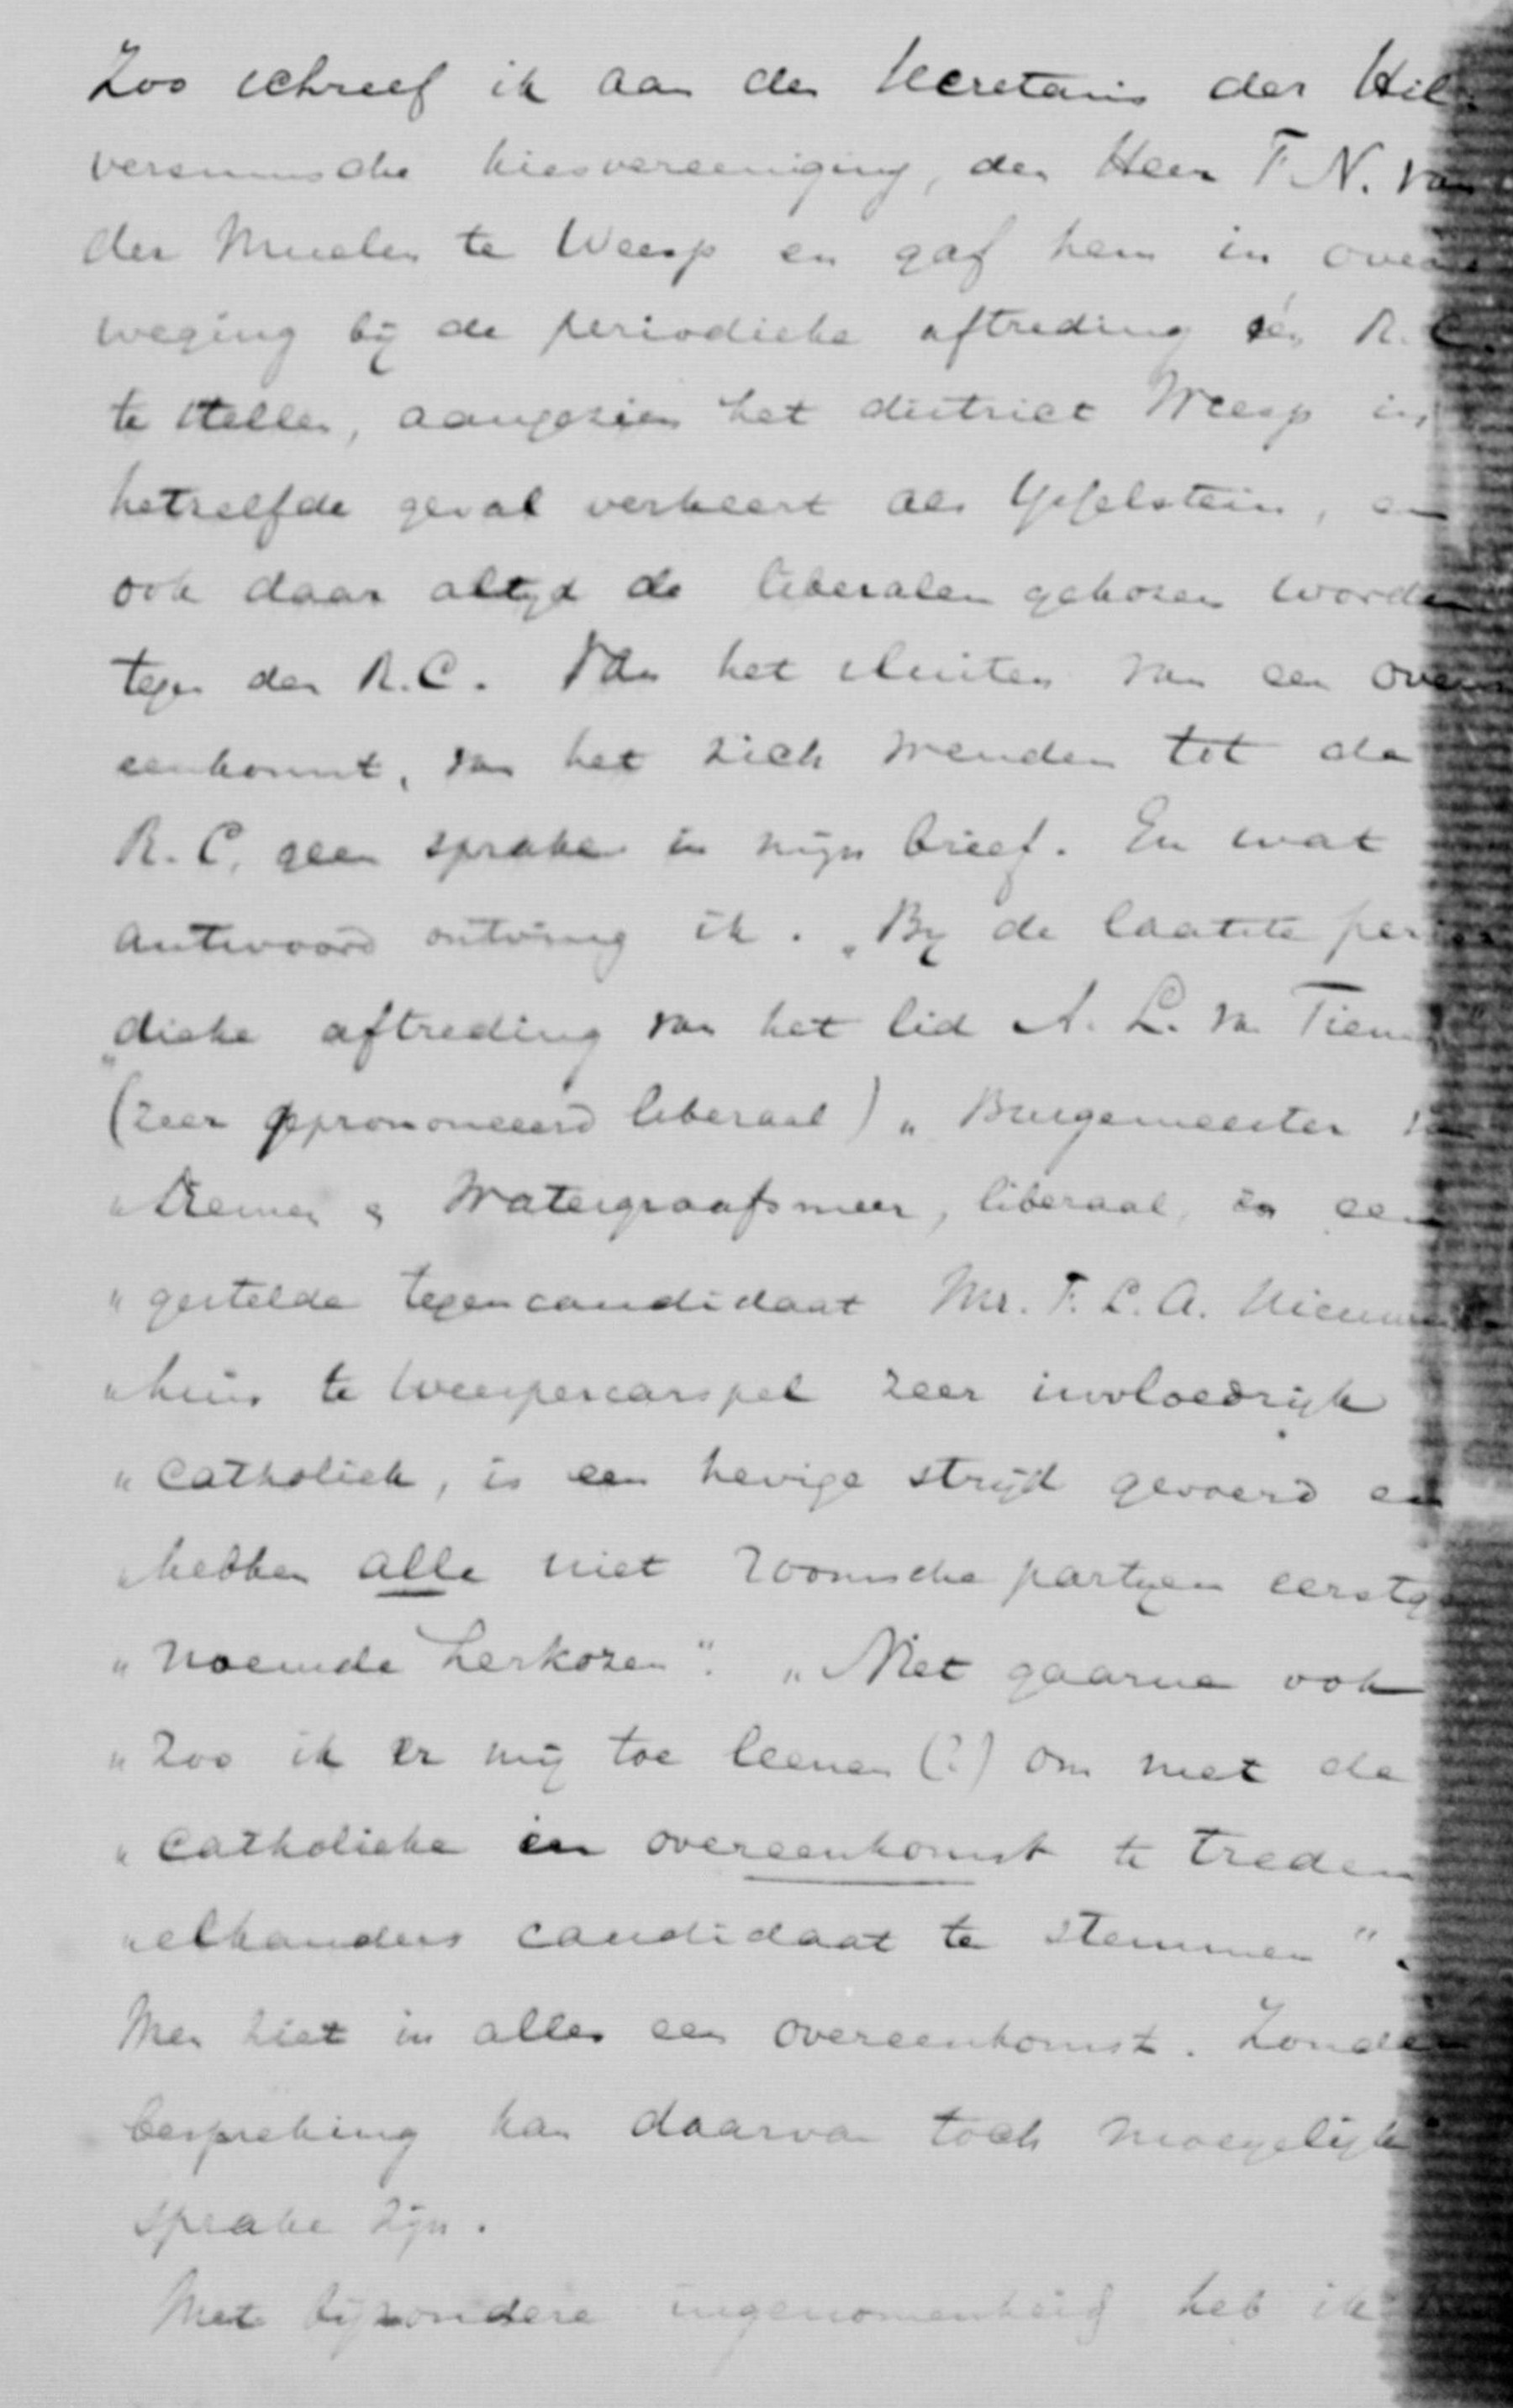 Zoo schreef ik aan den secretaris der Hil-
versumsche kiesvereeniging, den Heer F. N. van
der Muelen te Weesp en gaf hem in over-
weging bij de periodieke aftreding één R.C.
te stellen, aangezien het district Weesp in
hetzelfde geval verkeert als IJsselstein, en
ook daar altijd de liberalen gekozen worden
tegen den R.C. Van het sluiten van een over-
eenkomst, van het zich wenden tot de
R.C. geen sprake in mijn brief. En wat
antwoord ontving ik. „By de laatste perio-
„dieke aftreding van het lid A. L. van Tienen
(zeer geprononceerd liberaal) „Burgemeester van
„Diemen & Watergraafsmeer, liberaal, en een
„gestelde tegencandidaat Mr. F. L. A. Nieuwen-
„huis te Weespercarspel zeer invloedrijk
„catholiek, is een hevige strijd gevoerd en
„hebben alle niet roomsche partyen eerstge-
„noemde herkozen". „Niet gaarne ook
„zoo ik er mij toe leenen (?) om met de
„catholieke in overeenkomst te treden
„elkanders candidaat te stemmen".
Men ziet in alles een overeenkomst. Zonder
bespreking kan daarvan toch moeyelijk
sprake zijn.
Met bijzondere ingenomenheid heb ik